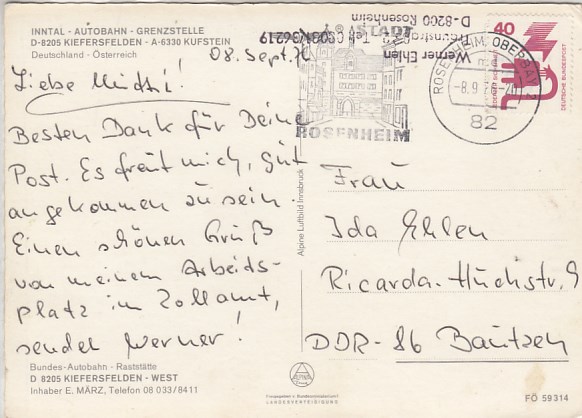 INNTAL - AUTOBAHN - GRENZSTELLE
D-8205 KIEFERSFELDEN - A-6330 KUFSTEIN
Deutschland - Österreich
08. Sept. 76
Liebe Mutti!
Besten Dank für Deine
Post. Es freut mich, gut
angekommen zu sein.
Einen schönen Gruß
von meinem Arbeits-
platz im Zollamt,
sendet Werner!
Bundes-Autobahn - Raststätte
D 8205 KIEFERSFELDEN - WEST
Inhaber E. MÄRZ, Telefon 08 033/8411
Alpine Luftbild Innsbruck
Werner Ehlen
D-8200 Rosenheim
Tel. 08031/36219
ROSENHEIM
ROSENHEIM, OBERBAY 2
-8.9.76-20
82
40
DEUTSCHE BUNDESPOST
Frau
Ida Ehlen
Ricarda-Huchstr. 9
DDR-86 Bautzen
LANDESVERTEIDIGUNG
FÖ 59314